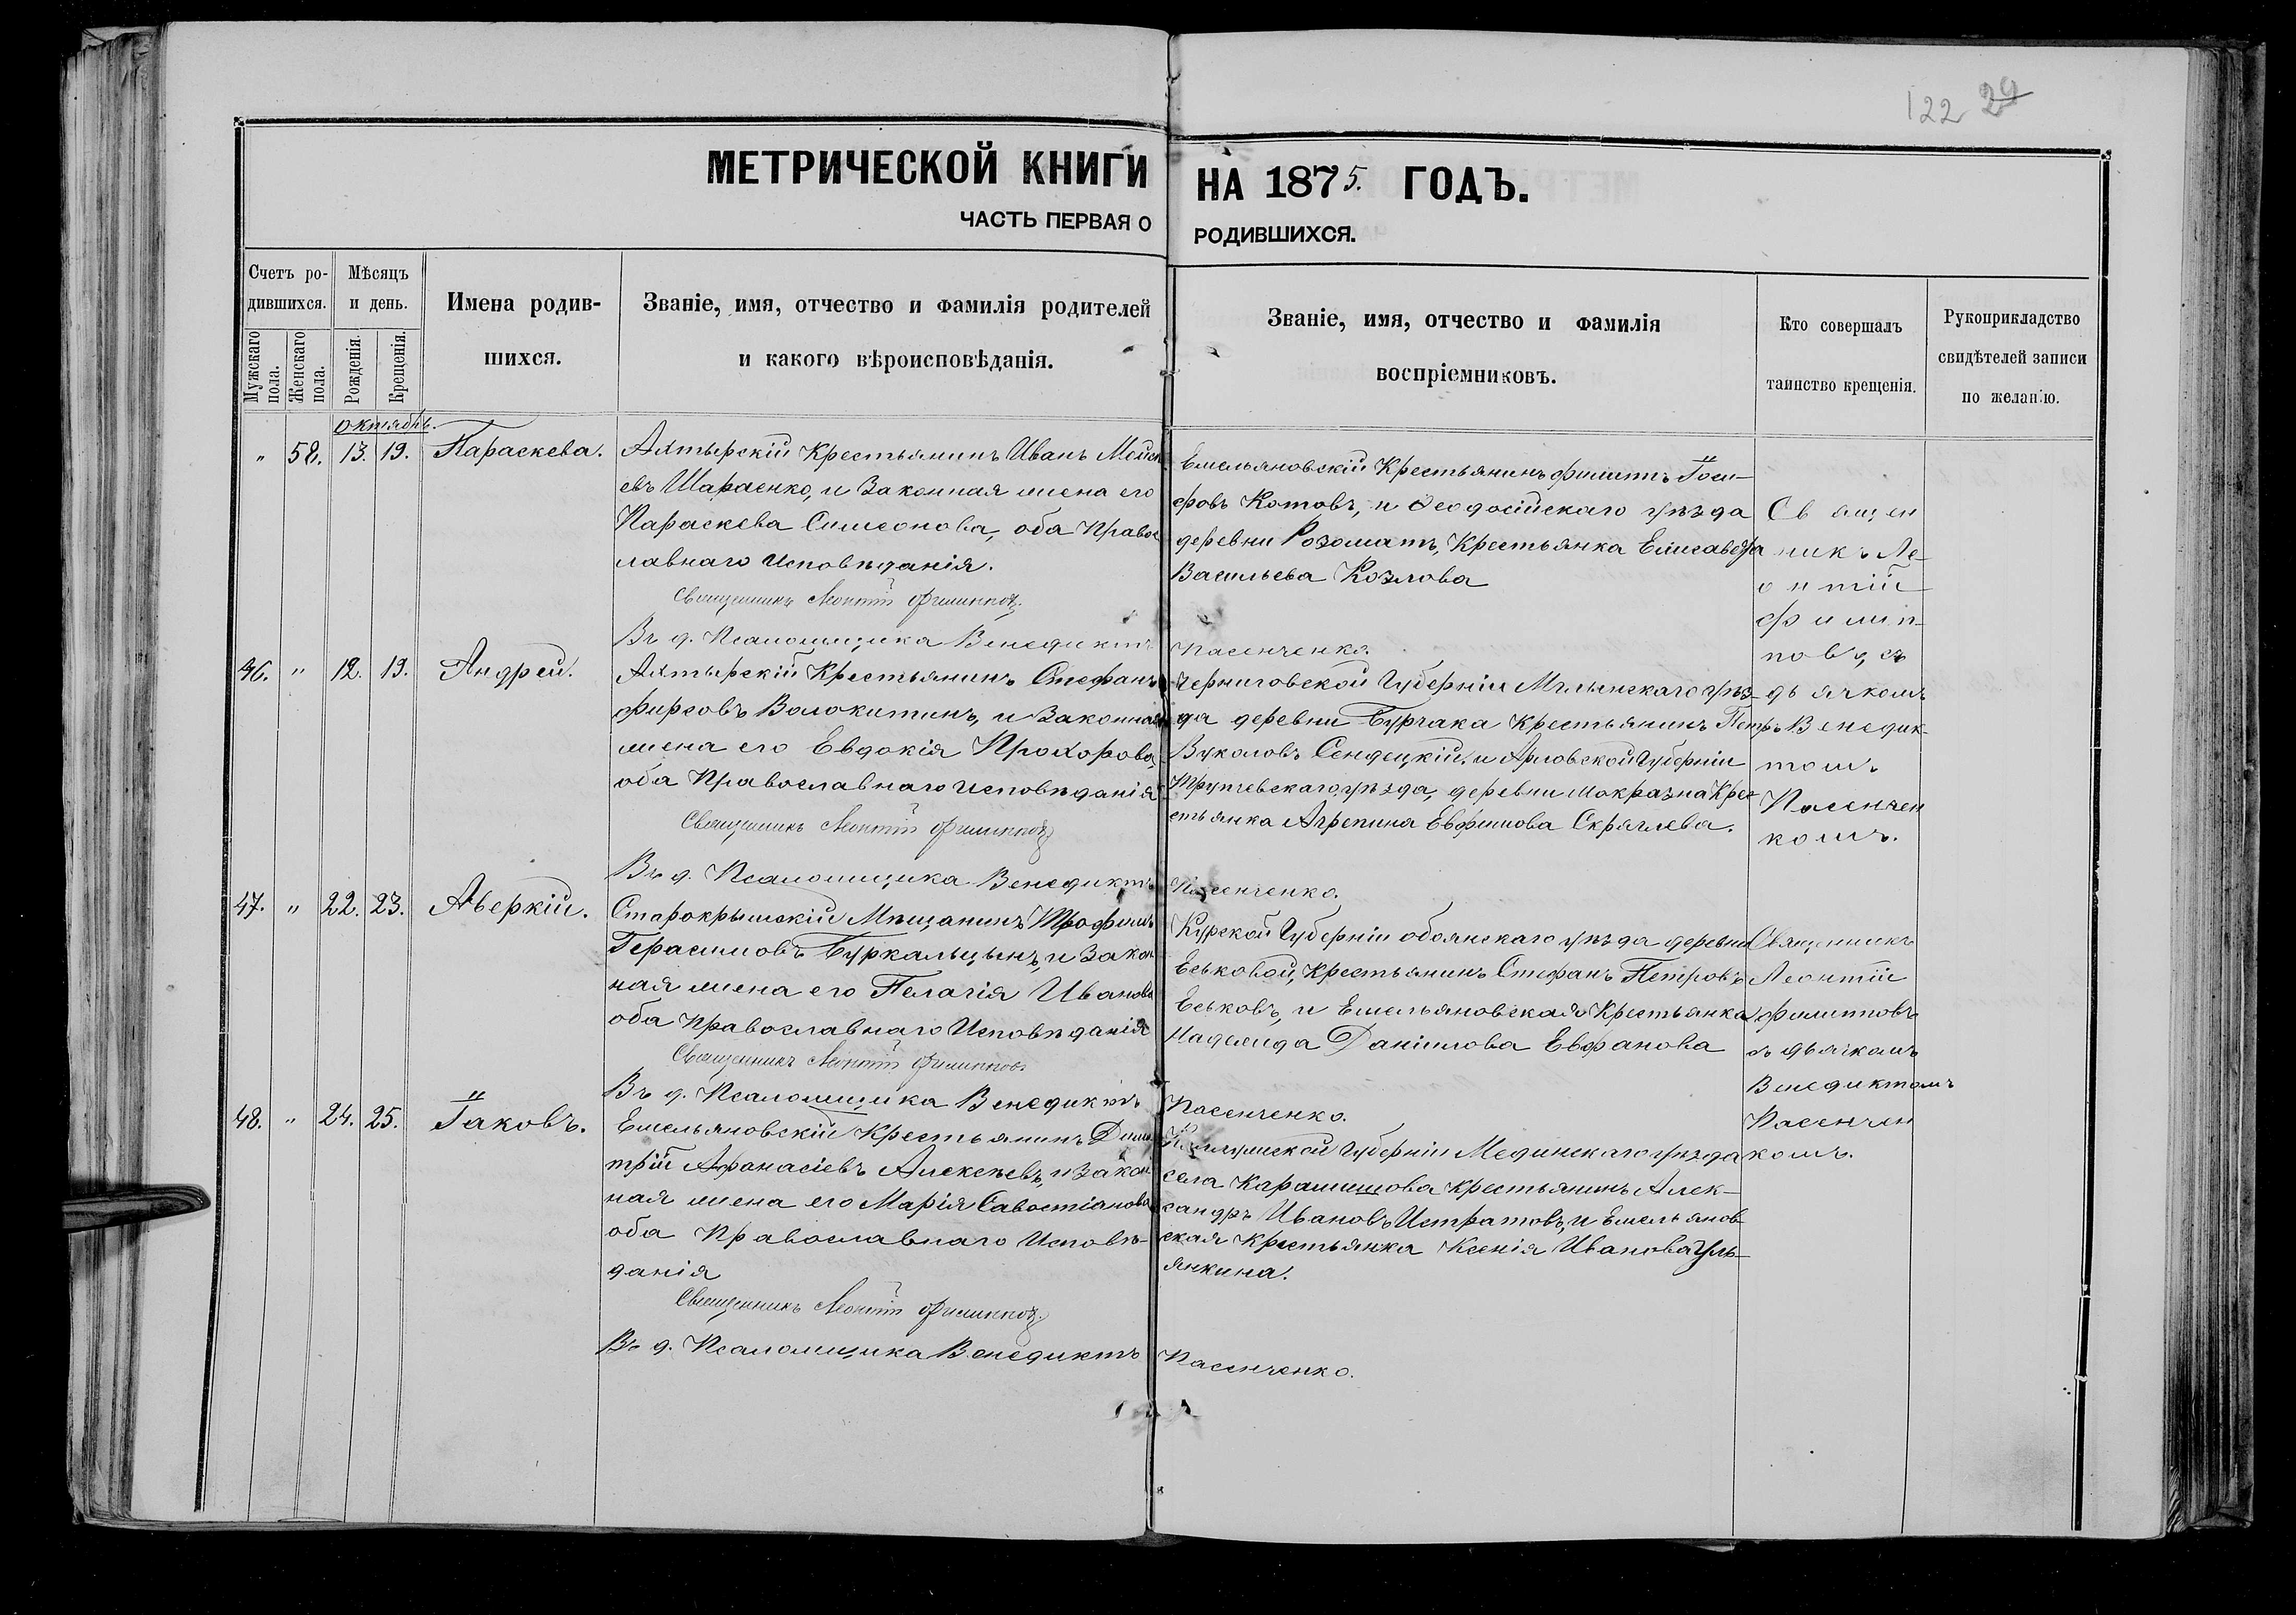 122 29
МЕТРИЧЕСКОЙ КНИГИ НА 1875. ГОДЪ.
ЧАСТЬ ПЕРВАЯ О РОДИВШИХСЯ.
Счетъ ро-
дившихся.
Мужскаго пола.
Женскаго пола.
Мѣсяцъ
и день.
Рожденія.
Крещенія.
Имена родив-
шихся.
Званіе, имя, отчество и фамилія родителей
и какого вѣроисповѣданія.
Званіе, имя, отчество и фамилія
воспріемниковъ.
Кто совершалъ
таинство крещенія.
Рукоприкладство
свидѣтелей записи
по желанію.
Октябрь.
" 52. 13. 19. Параскева.
Ахтырскій Крестьянинъ Иванъ Мойсе
евъ Шараенко, и Законная жена его
Параскева Симеонова, оба Правос
лавнаго Исповѣданія.
Священникъ Леонтій Филипповъ.
Въ д. Псаломщика Венедиктъ Пасенченко.
Емельяновскій Крестьянинъ Филиппъ Іоси-
фовъ Котовъ, и Ѳеодосійскаго уѣзда
деревни Розоматъ, Крестьянка Елисавета
Васильева Козлова
Священ
никъ Ле-
онтій
Филип-
повъ, съ
дьячкомъ
Венедик-
томъ
Пасенчен
комъ.
46. " 12. 19. Андрей.
Ахтырскій Крестьянинъ Стефанъ
Фирсовъ Волокитинъ, и Законная
жена его Евдокія Прохорова,
оба Православнаго исповѣданія
Священникъ Леонтій Филипповъ
Въ д. Псаломщика Венедиктъ Пасенченко.
Черниговской Губерніи Мглинскаго уѣз-
да деревни Бурчака Крестьянинъ Петръ
Вуколовъ Сендецкій, и Арловской Губерніи
Трупчевскаго уѣзда, деревни Мокразна Крес
стьянка Агрепина Евфимова Скряглева.
47. " 22. 23. Аверкій.
Старокрымскій Мѣщанинъ Трофимъ
Герасимовъ Буркальцынъ, и Закон
ная жена его Пелагія Иванова
оба Православнаго Исповѣданія
Священникъ Леонтій Филипповъ
Въ д. Псаломщика Венедиктъ Пасенченко.
Курской Губерніи обоянскаго уѣзда деревни
Еськовой, Крестьянинъ Стефанъ Петровъ
Еськовъ, и Емельяновская Крестьянка
Надежда Даніилова Евфанова
Священникъ
Леонтій
Филипповъ
съ дьячкомъ
Венедиктомъ
Пасенчен
комъ.
48. " 24. 25. Іаковъ.
Емельяновскій Крестьянинъ Дими
трій Афанасіевъ Алексѣевъ, и Закон
ная жена его Марія Савостіанова
оба Православнаго Исповѣ-
данія
Священникъ Леонтій Филипповъ.
Въ д. Псаломщика Венедиктъ Пасенченко.
Калужской Губерніи Мединскаго уѣзда
села Карамышова Крестьянинъ Алек-
сандръ Ивановъ Истратовъ, и Емельянов-
ская Крестьянка Ксенія Иванова Уль-
янкина.